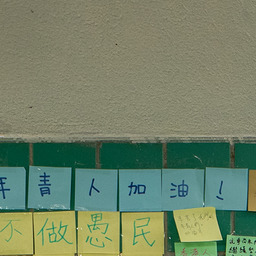 年青人加油！
不做愚民